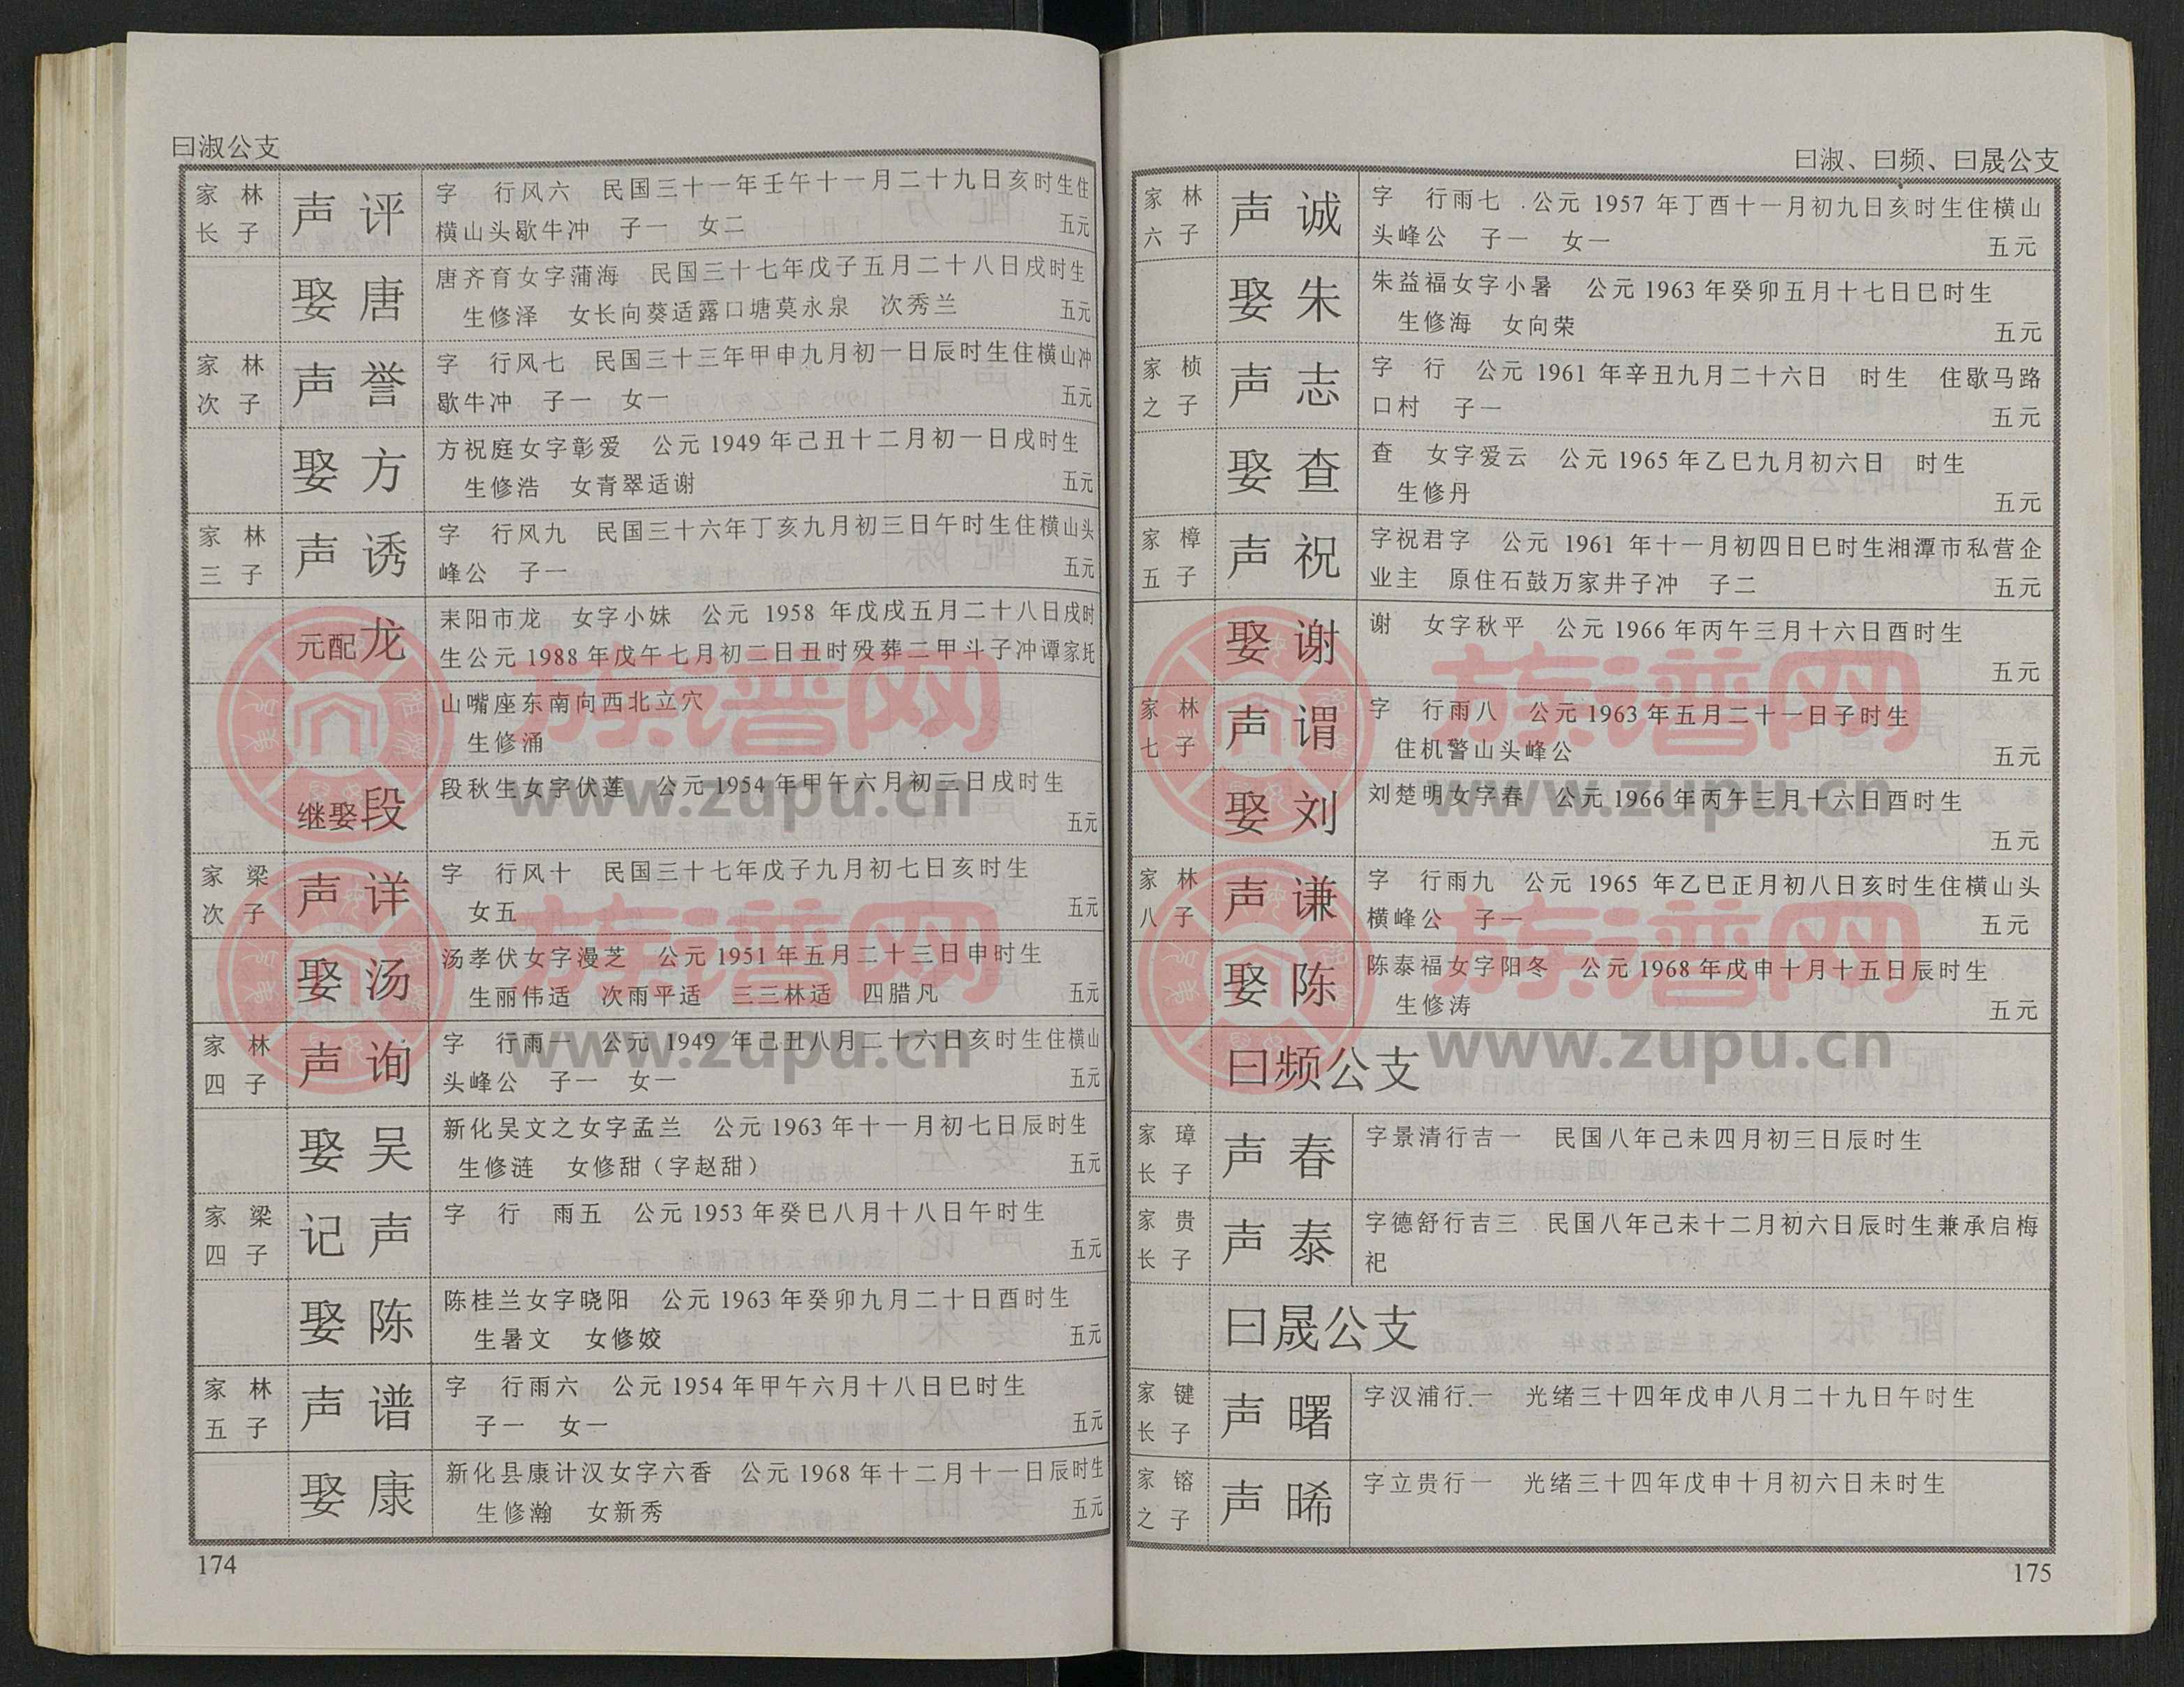 曰淑公支
家林
长子
声评
字 行风六 民国三十一年壬午十一月二十九日亥时生住
横山头歇牛冲 子一 女二 五元
娶唐
唐齐育女字蒲海 民国三十七年戊子五月二十八日戌时生
生修泽 女长向葵适露口塘莫永泉 次秀兰 五元
家林
次子
声誉
字 行风七 民国三十三年甲申九月初一日辰时生住横山冲
歇牛冲 子一 女一 五元
娶方
方祝庭女字彰爱 公元1949年己丑十二月初一日戌时生
生修浩 女青翠适谢 五元
家林
三子
声诱
字 行风九 民国三十六年丁亥九月初三日午时生住横山头
峰公 子一 五元
元配龙
耒阳市龙 女字小妹 公元1958年戊戌五月二十八日戌时
生公元1988年戊午七月初二日丑时殁葬二甲斗子冲谭家坵
山嘴座东南向西北立穴
生修涌
继娶段
段秋生女字伏莲 公元1954年甲午六月初三日戌时生
五元
家梁
次子
声详
字 行风十 民国三十七年戊子九月初七日亥时生
女五 五元
娶汤
汤孝伏女字漫芝 公元1951年五月二十三日申时生
生丽伟适 次雨平适 三三林适 四腊凡 五元
家林
四子
声询
字 行雨一 公元1949年己丑八月二十六日亥时生住横山
头峰公 子一 女一 五元
娶吴
新化吴文之女字孟兰 公元1963年十一月初七日辰时生
生修涟 女修甜（字赵甜） 五元
家梁
四子
记声
字 行 雨五 公元1953年癸巳八月十八日午时生
五元
娶陈
陈桂兰女字晓阳 公元1963年癸卯九月二十日酉时生
生暑文 女修姣 五元
家林
五子
声谱
字 行雨六 公元1954年甲午六月十八日巳时生
子一 女一 五元
娶康
新化县康计汉女字六香 公元1968年十二月十一日辰时生
生修瀚 女新秀 五元
174
曰淑、曰频、曰晟公支
家林
六子
声诚
字 行雨七 公元1957年丁酉十一月初九日亥时生住横山
头峰公 子一 女一 五元
娶朱
朱益福女字小暑 公元1963年癸卯五月十七日巳时生
生修海 女向荣 五元
家桢
之子
声志
字 行 公元1961年辛丑九月二十六日 时生 住歇马路
口村 子一 五元
娶查
查 女字爱云 公元1965年乙巳九月初六日 时生
生修丹 五元
家樟
五子
声祝
字祝君字 公元1961年十一月初四日巳时生湘潭市私营企
业主 原住石鼓万家井子冲 子二 五元
娶谢
谢 女字秋平 公元1966年丙午三月十六日酉时生
五元
家林
七子
声谓
字 行雨八 公元1963年五月二十一日子时生
住机警山头峰公 五元
娶刘
刘楚明女字春 公元1966年丙午三月十六日酉时生
五元
家林
八子
声谦
字 行雨九 公元1965年乙巳正月初八日亥时生住横山头
横峰公 子一 五元
娶陈
陈泰福女字阳冬 公元1968年戊申十月十五日辰时生
生修涛 五元
曰频公支
家璋
长子
声春
字景清行吉一 民国八年己未四月初三日辰时生
家贵
长子
声泰
字德舒行吉三 民国八年己未十二月初六日辰时生兼承启梅
祀
曰晟公支
家键
长子
声曙
字汉浦行一 光绪三十四年戊申八月二十九日午时生
家镕
之子
声晞
字立贵行一 光绪三十四年戊申十月初六日未时生
175
族谱网
www.zupu.cn
族谱网
www.zupu.cn
族谱网
www.zupu.cn
族谱网
www.zupu.cn